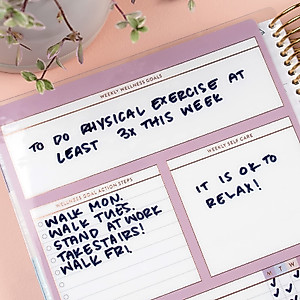 WEEKLY WELLNESS GOALS
TO DO PHYSICAL EXERCISE AT
LEAST 3X THIS WEEK
WELLNESS GOAL ACTION STEPS
WALK MON.
WALK TUES
STAND AT WORK
TAKE STAIRS!
WALK FRI.
WEEKLY SELF CARE
IT IS OK TO
RELAX!
M T W